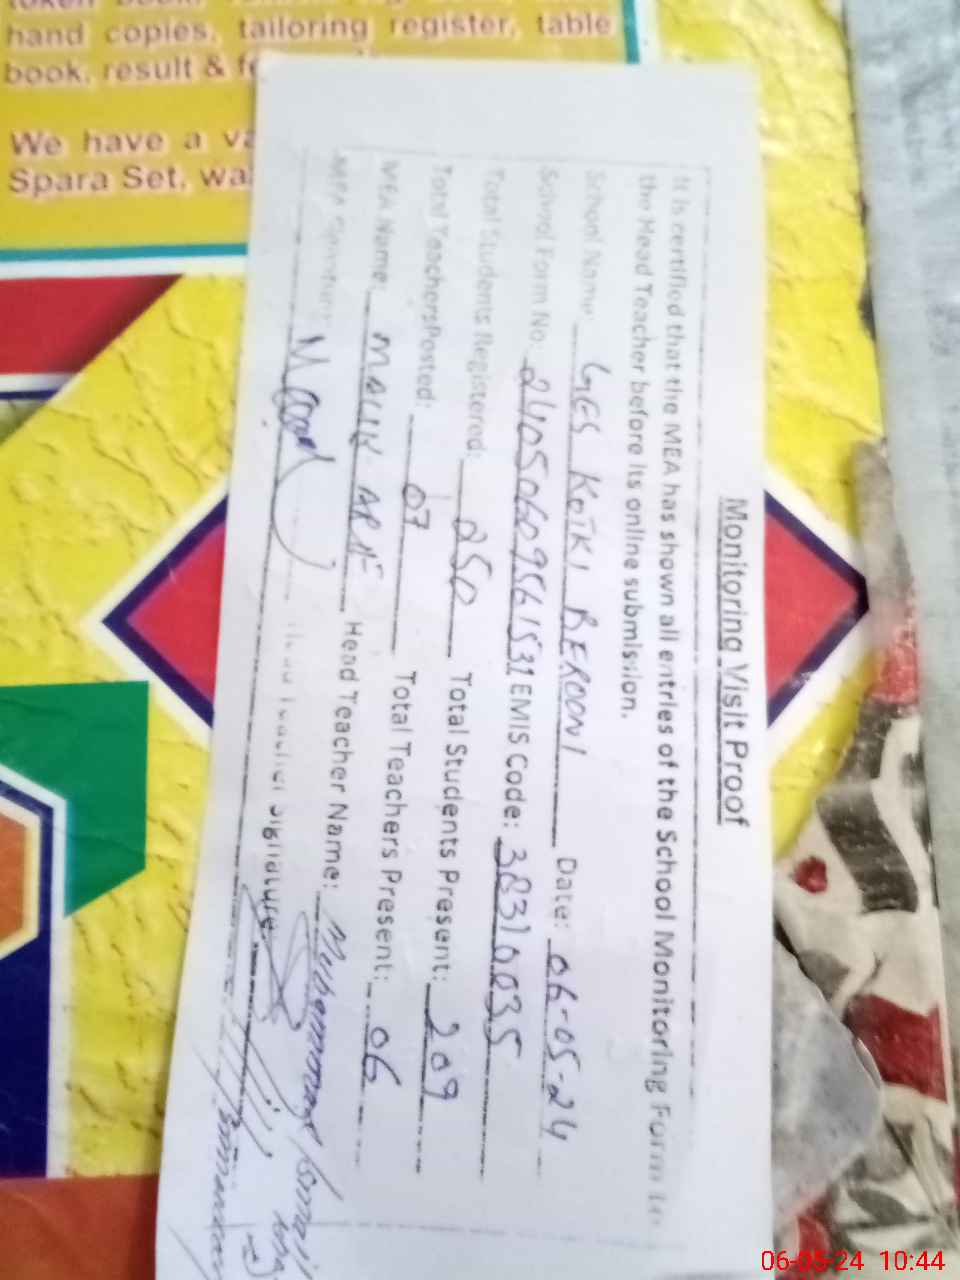 hand copies, tailoring register, table
book, result &
We have a
Spara Set,
Monitoring Visit Proof
It is certified that the MEA has shown all entries of the School Monitoring Form to
the Head Teacher before its online submission.
School Name: GES KOTKI BEROONI Date: 06-05-24
School Form No: EMIS Code: 38310035
Total Students Registered: 250 Total Students Present: 209
Total Teachers Posted: 07 Total Teachers Present: 06
MEA Name: MALIK Head Teacher Name: Muhammad Ismail
MEA Signature: Head Teacher Signature:
06-05-24 10:44